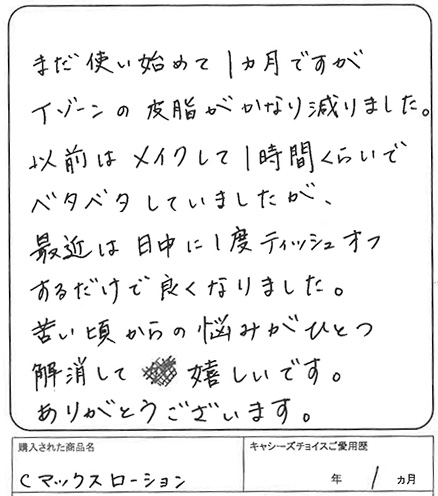 まだ使い始めて1カ月ですが
イゾーンの皮脂がかなり減りました。
以前はメイクして1時間くらいで
ベタベタしていましたが、
最近は日中に1度ティッシュオフ
するだけで良くなりました。
苦い頃からの悩みがひとつ
解消して 嬉しいです。
ありがとうございます。
購入された商品名
キャシーズチョイスご愛用歴
Cマックスローション
年 1 カ月